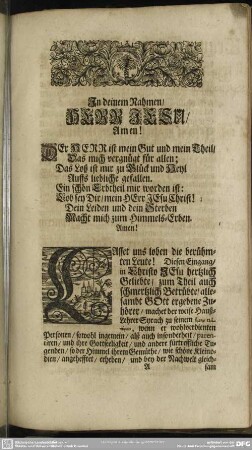 In deinem Nahmen/
HERR JESU/
Amen!
DEr HERR ist mein Gut und mein Theil/
Das mich vergnügt für allen;
Das Loß ist mir zu Glück und Heyl
Auffs liebliche gefallen.
Ein schön Erbtheil mir worden ist:
Lob sey Dir/ mein HErr JEsu Christ!
Dein Leiden und dein Sterben
Macht mich zum Himmels-Erben.
Amen!
LAsset uns loben die berühm-
ten Leute! Diesen Eingang/
in Christo JEsu hertzlich
Geliebte/ zum Theil auch
schmertzlich Betrübte/ alle-
samt GOtt ergebene Zu-
hörer/ machet der weise Hauß-
Lehrer Syrach zu seinem
wenn er wohlverdienten
Personen/ sowohl ingemein/ als auch insonderheit/
und ihre Gottseligkeit/ und andere fürtreffliche Tu-
genden/ so der Himmel ihrem Gemüthe/ wie schöne Kleino-
dien/ angehefftet/ erheben/ und bey der Nachwelt gleich-
A sam
DFG